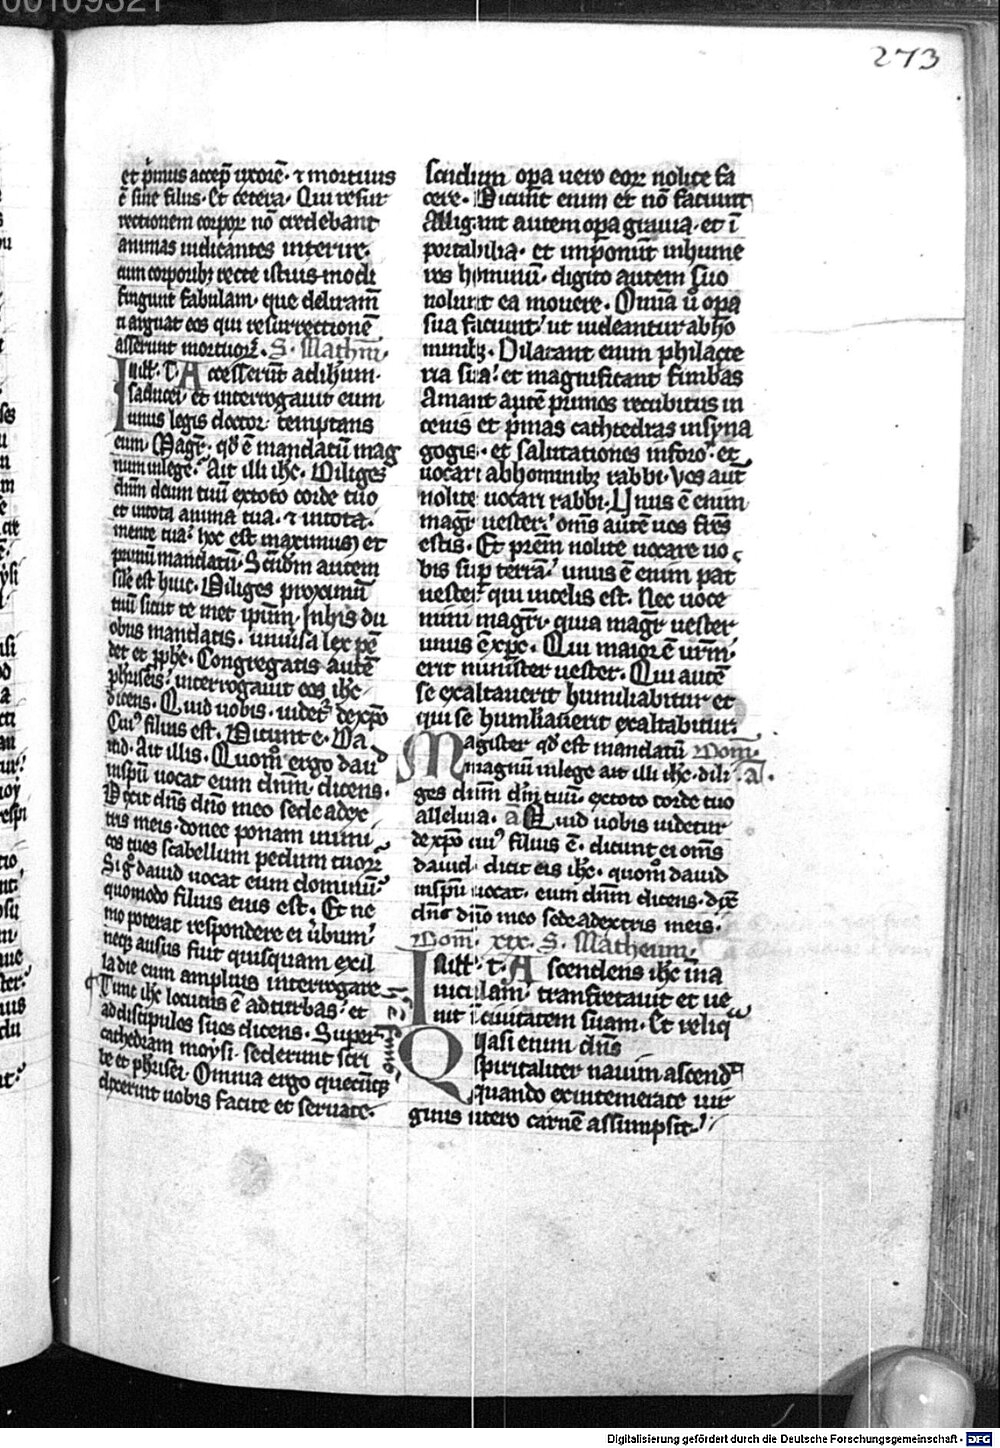 00109321
273
et p̄mus accep̄ uxorē· ⁊ mortuus
ē sine filius· Et cetera· Qui resur
rectionem corpoꝝ nō credebant
animas iudicantes interire·
cum corporibꝫ recte istius modi
fingunt fabulam· que deliram̄
ti arguat eos qui resurrectionē
asserunt mortuoꝝ· S· Mathm̄·
In ill̄· t̄· Accesserūt ad ihum·
saducei· et interrogauit eum
unus legis doctor temptans
eum· Magr̄· qd̄ ē mandatū mag
num in lege· Ait illi ihc̄· Diliges
dn̄m deum tuū ex toto corde tuo
et in tota anima tua· ⁊ in tota·
mente tua· hoc est maximum et
primū mandatū· Scd̄m autem
sil̄e est huic· Diliges proximū
tuū sicut te met ip̄m· In his du
obus mandatis· uniuersa lex pē
det et pph̄e· Congregatis autē
phariseis· interrogauit eos ihc̄
dicens· Quid uobis· uidet̄ de xp̄o
Cuiꝰ filius est· Dicunt e· Da
uid· Ait illis· Quom̄ ergo dauid
in sp̄u uocat eum dn̄m· dicens·
Dixit dn̄s dn̄o meo sede a dex
tris meis· donec ponam inimi
cos tuos scabellum pedum tuoꝝ
Si g̊ dauid uocat eum dominū·
quomodo filius eius est· Et ne
mo poterat respondere ei ūbum·
neqꝫ ausus fuit quisquam ex il
la die cum amplius interrogare
Tunc ihc̄ locutus ē ad turbas· et
ad discipulos suos dicens· Super
cathedram moysi· sederunt scri
be et pharisei· Omnia ergo quecūqꝫ
dixerint uobis facite et seruate·
secundum opa uero eoꝝ nolite fa
cere· Dicunt enim et nō faciunt
Alligant autem opa grauia· et ī
portabilia· et imponūt in hume
ros hominū· digito autem suo
nolunt ea mouere· Omnia ū opa
sua faciunt· ut uideantur ab ho
minibꝫ· Dilatant enim philacte
ria sua· et magnificant fimbrias
Amant autē primos recubitus in
cenis et p̄mas cathedras in syna
gogis· et salutationes in foro· et
uocari ab hominibꝫ rabbi· Vos aut̄
nolite uocari rabbi· Unus ē enim
magr̄ uester· om̄s autē uos frēs
estis· Et prēm nolite uocare uo
bis sup̄ terrā· unus ē enim pat̄
uester qui in celis est· Nec uoce
mini magr̄i· quia magr̄ uester
unus ē xp̄c· Qui maior ē ur̄m·
erit minister uester· Qui autē
se exaltauerit humiliabitur et
qui se humiliauerit exaltabitur·
Magister qd̄ est mandatū Dom̄·
magnū in lege ait illi ihc̄· dili a̅·
ges dn̄m dm̄ tuū· ex toto corde tuo
alleluia· a̅ Quid uobis uidetur
de xp̄o cuiꝰ filius ē· dicunt ei om̄s
dauid· dicit eis ihc̄· quom̊ dauid
in sp̄u uocat· eum dn̄m dicens· dix̄
dn̄s dn̄o meo sede a dextris meis·
Dom̄· xix· S· Matheum·
In ill̄· t̄· Ascendens ihc̄ in na
uiculam· transfretauit et ue
nit ī ciuitatem suam· Et reliq̄
Quasi enim dn̄s
spiritaliter nauim ascend̄
quando ex intemerate uir
ginis utero carnē assumpsit·
Digitalisierung gefördert durch die Deutsche Forschungsgemeinschaft - DFG